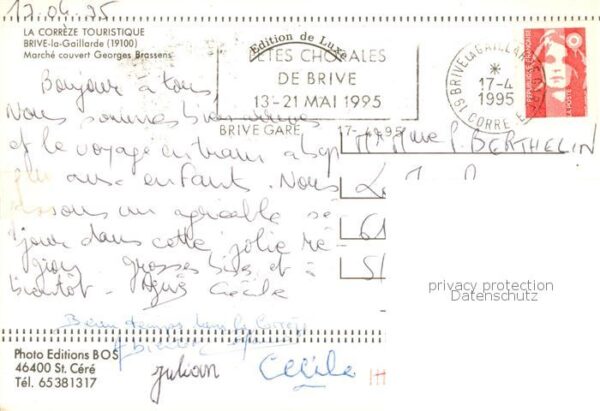 17.04.95
LA CORRÈZE TOURISTIQUE
BRIVE-la-Gaillarde (19100)
Marché couvert Georges Brassens
Edition de Luxe
FÊTES CHORALES
DE BRIVE
13-21 MAI 1995
BRIVE GARE 17-4-95
19 BRIVE LA GAILLARDE
17-4
1995
CORREZE
REPUBLIQUE FRANÇAISE
LA POSTE
Bonjour à tous
Nous sommes bien
et le voyage en train a
plu aux enfants. Nous
un agréable sé
jour dans cette jolie ré
gion. Grosses bises et à
bientôt. Cécile
P. BERTHELIN
privacy protection
Datenschutz
Beau temps
à bientôt
Photo Editions BOS
46400 St. Céré
Tél. 65381317
julian
Cecile